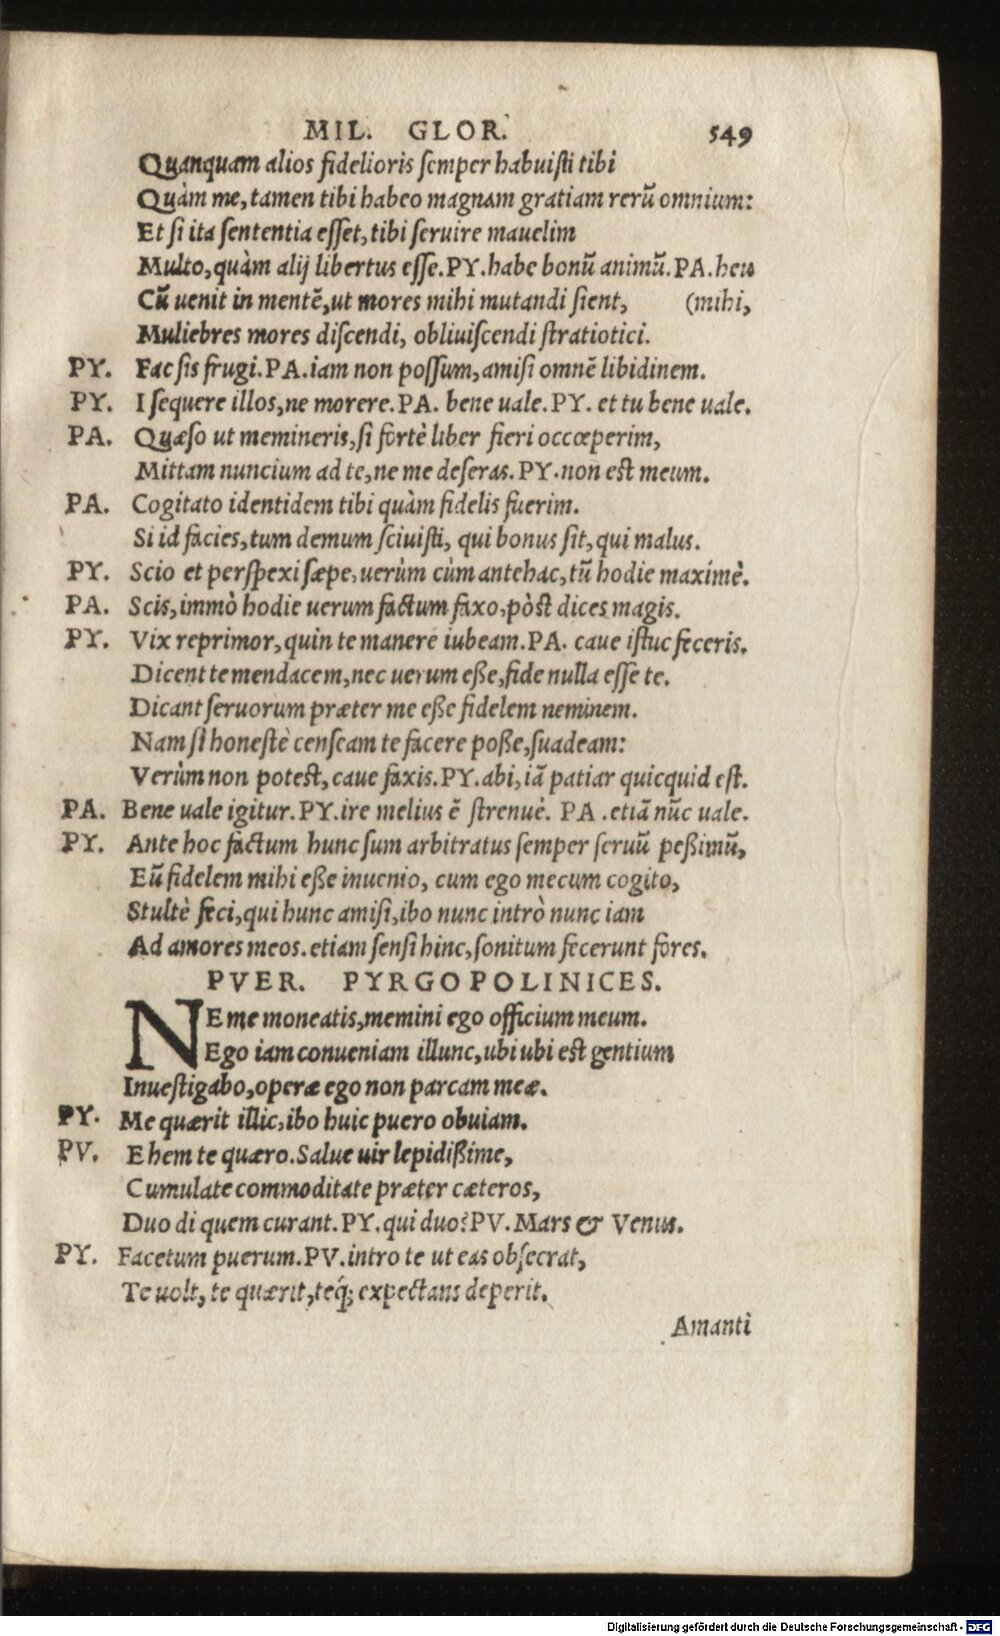 MIL. GLOR. 549
Quanquam alios fidelioris semper habuisti tibi
Quàm me, tamen tibi habeo magnam gratiam rerũ omnium:
Et si ita sententia esset, tibi seruire mauelim
Multo, quàm alij libertus esse. PY. habe bonũ animũ. PA. heu
Cũ uenit in mentẽ, ut mores mihi mutandi sient, (mihi,
Muliebres mores discendi, obliuiscendi stratiotici.
PY. Fac sis frugi. PA. iam non possum, amisi omnẽ libidinem.
PY. I sequere illos, ne morere. PA. bene uale. PY. et tu bene uale.
PA. Quæso ut memineris, si fortè liber fieri occœperim,
Mittam nuncium ad te, ne me deseras. PY. non est meum.
PA. Cogitato identidem tibi quàm fidelis fuerim.
Si id facies, tum demum sciuisti, qui bonus sit, qui malus.
PY. Scio et perspexi sæpe, uerùm cùm antehac, tũ hodie maximè.
PA. Scis, immò hodie uerum factum faxo, pòst dices magis.
PY. Vix reprimor, quin te manere iubeam. PA. caue istuc feceris.
Dicent te mendacem, nec uerum eße, fide nulla esse te.
Dicant seruorum præter me eße fidelem neminem.
Nam si honestè censeam te facere poße, suadeam:
Verùm non potest, caue faxis. PY. abi, iã patiar quicquid est.
PA. Bene uale igitur. PY. ire melius ẽ strenuè. PA. etiã nũc uale.
PY. Ante hoc factum hunc sum arbitratus semper seruũ peßimũ,
Eũ fidelem mihi eße inuenio, cum ego mecum cogito,
Stultè feci, qui hunc amisi, ibo nunc intrò nunc iam
Ad amores meos. etiam sensi hinc, sonitum fecerunt fores.
PVER. PYRGOPOLINICES.
NE me moneatis, memini ego officium meum.
Ego iam conueniam illunc, ubi ubi est gentium
Inuestigabo, operæ ego non parcam meæ.
PY. Me quærit illic, ibo huic puero obuiam.
PV. Ehem te quæro. Salue uir lepidißime,
Cumulate commoditate præter cæteros,
Duo di quem curant. PY. qui duo? PV. Mars & Venus.
PY. Facetum puerum. PV. intro te ut eas obsecrat,
Te uolt, te quærit, teq́; expectans deperit.
Amanti
Digitalisierung gefördert durch die Deutsche Forschungsgemeinschaft - DFG